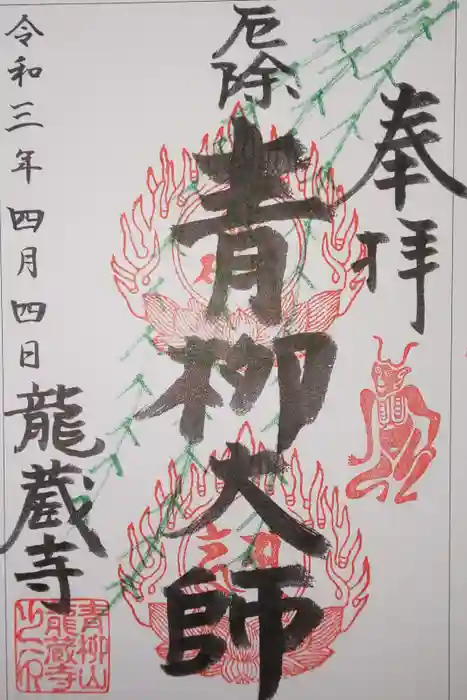 奉拝
厄除
青柳大師
令和三年四月四日
龍蔵寺
青柳山
龍蔵寺